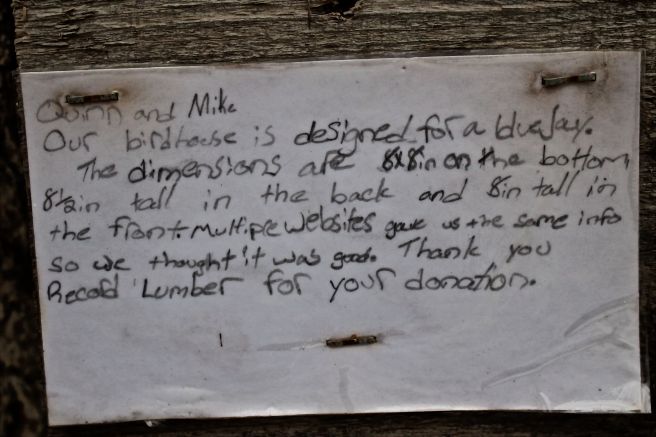 Quinn and Mike
Our birdhouse is designed for a bluejay.
The dimensions are 8x8in on the bottom,
8½in tall in the back and 8in tall in
the front. Multipe websites gave us the same info
so we thought it was good. Thank you
Record Lumber for your donation.